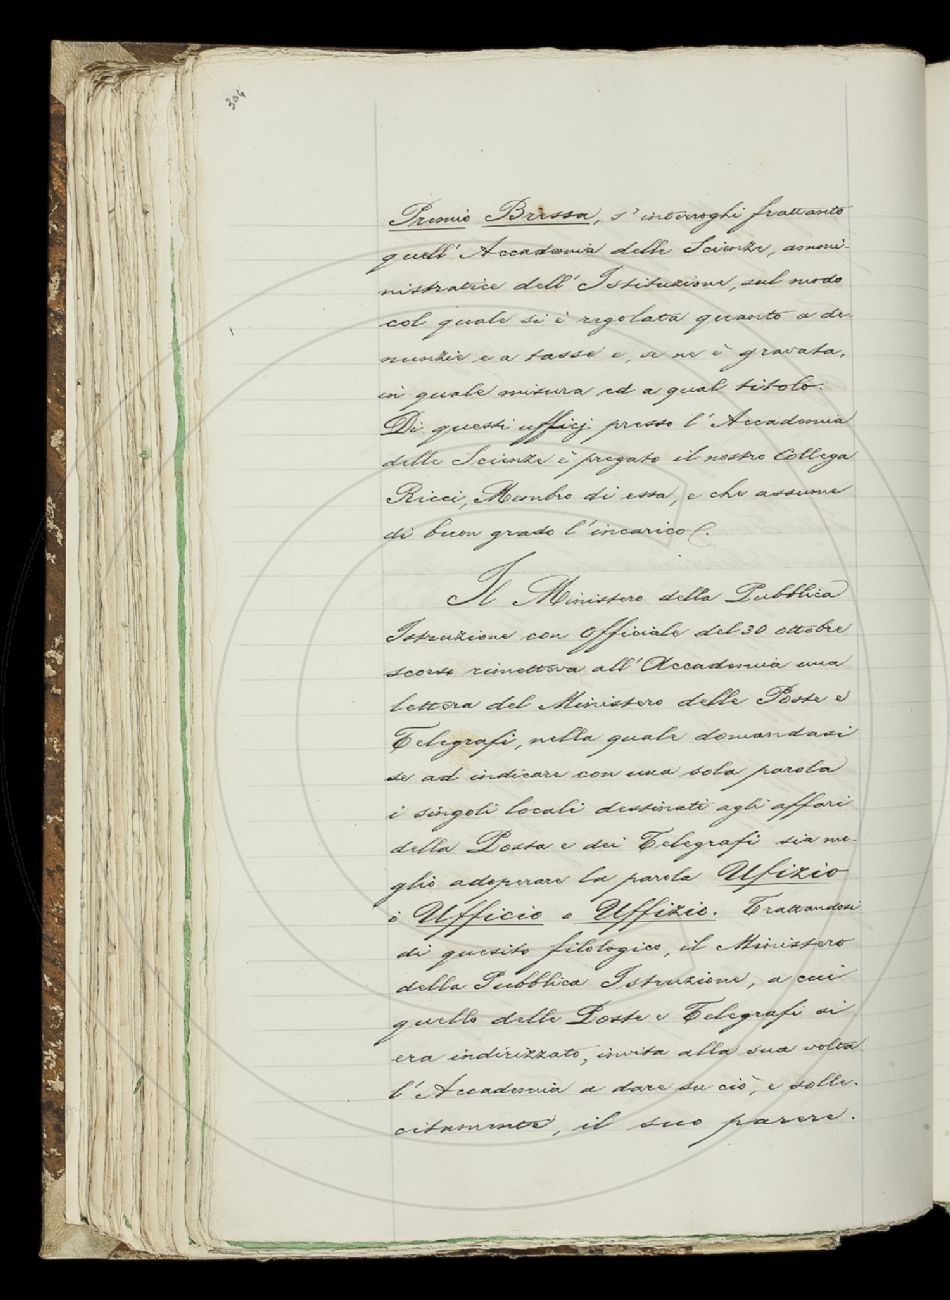 304
Premio Bressa, s'interroghi frattanto
quell'Accademia delle Scienze, ammi-
nistratice dell'Istituzione, sul modo
col quale si è regolata quanto a de-
nunzie e a tasse e, se ne è gravata,
in quale misura ed a qual titolo.
Di questi ufficj presso l'Accademia
delle Scienze è pregato il nostro Collega
Ricci, Membro di essa, e che assume
di buon grado l'incarico.
Il Ministero della Pubblica
Istruzione con Officiale del 30 ottobre
scorso rimetteva all'Accademia una
lettera del Ministero delle Poste e
Telegrafi, nella quale domandasi
se ad indicare con una sola parola
i singoli locali destinati agli affari
della Posta e dei Telegrafi sia me-
glio adoperare la parola Ufizio
o Ufficio o Uffizio. Trattandosi
di quesito filologico, il Ministero
della Pubblica Istruzione, a cui
quello delle Poste e Telegrafi si
era indirizzato, invita alla sua volta
l'Accademia a dare su ciò, e solle-
citamente, il suo parere.